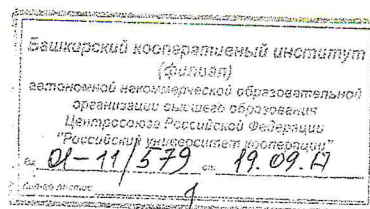 Башкирский кооперативный институт
(филиал)
автономной некоммерческой образовательной
организации высшего образования
Центросоюза Российской Федерации
"Российский университет кооперации"
01-11/579 от 19.09.17
1